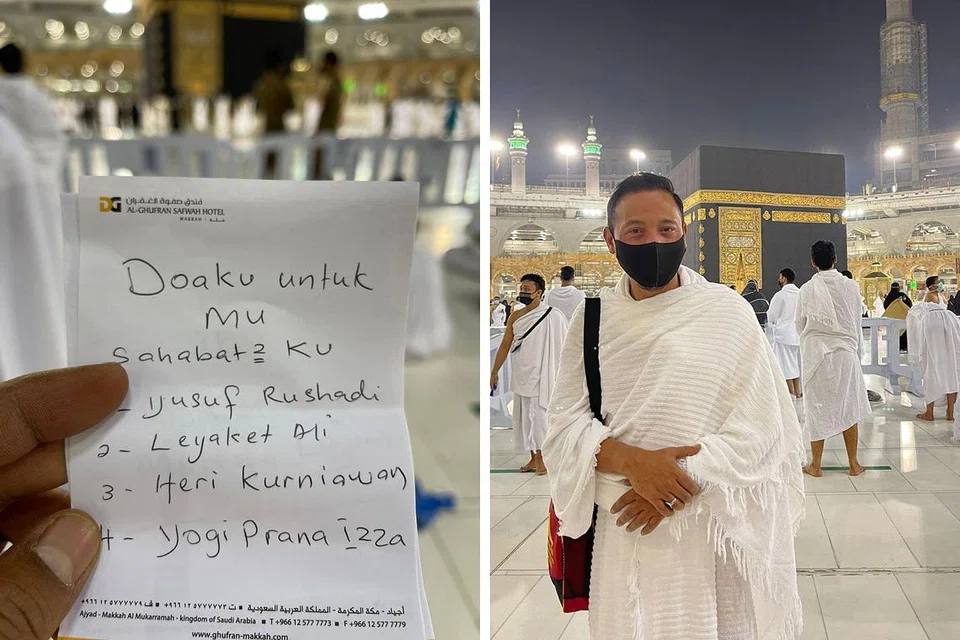 DG فندق صفوة الغفران
AL-GHUFRAN SAFWAH HOTEL
MAKKAH | مكة
Doaku untuk
MU
Sahabat2 Ku
- Yusuf Rushadi
2 - Leyaket Ali
3 - Heri Kurniawan
4 - Yogi Prana Izza
أجياد - مكة المكرمة - المملكة العربية السعودية ■ ت ٩٦٦١٢٥٧٧٧٧٧٣+ ■ ف ٩٦٦١٢٥٧٧٧٧٧٩+
Ajyad - Makkah Al Mukarramah - kingdom of Saudi Arabia ■ T +966 12 577 7773 ■ F +966 12 577 7779
www.ghufran-makkah.com